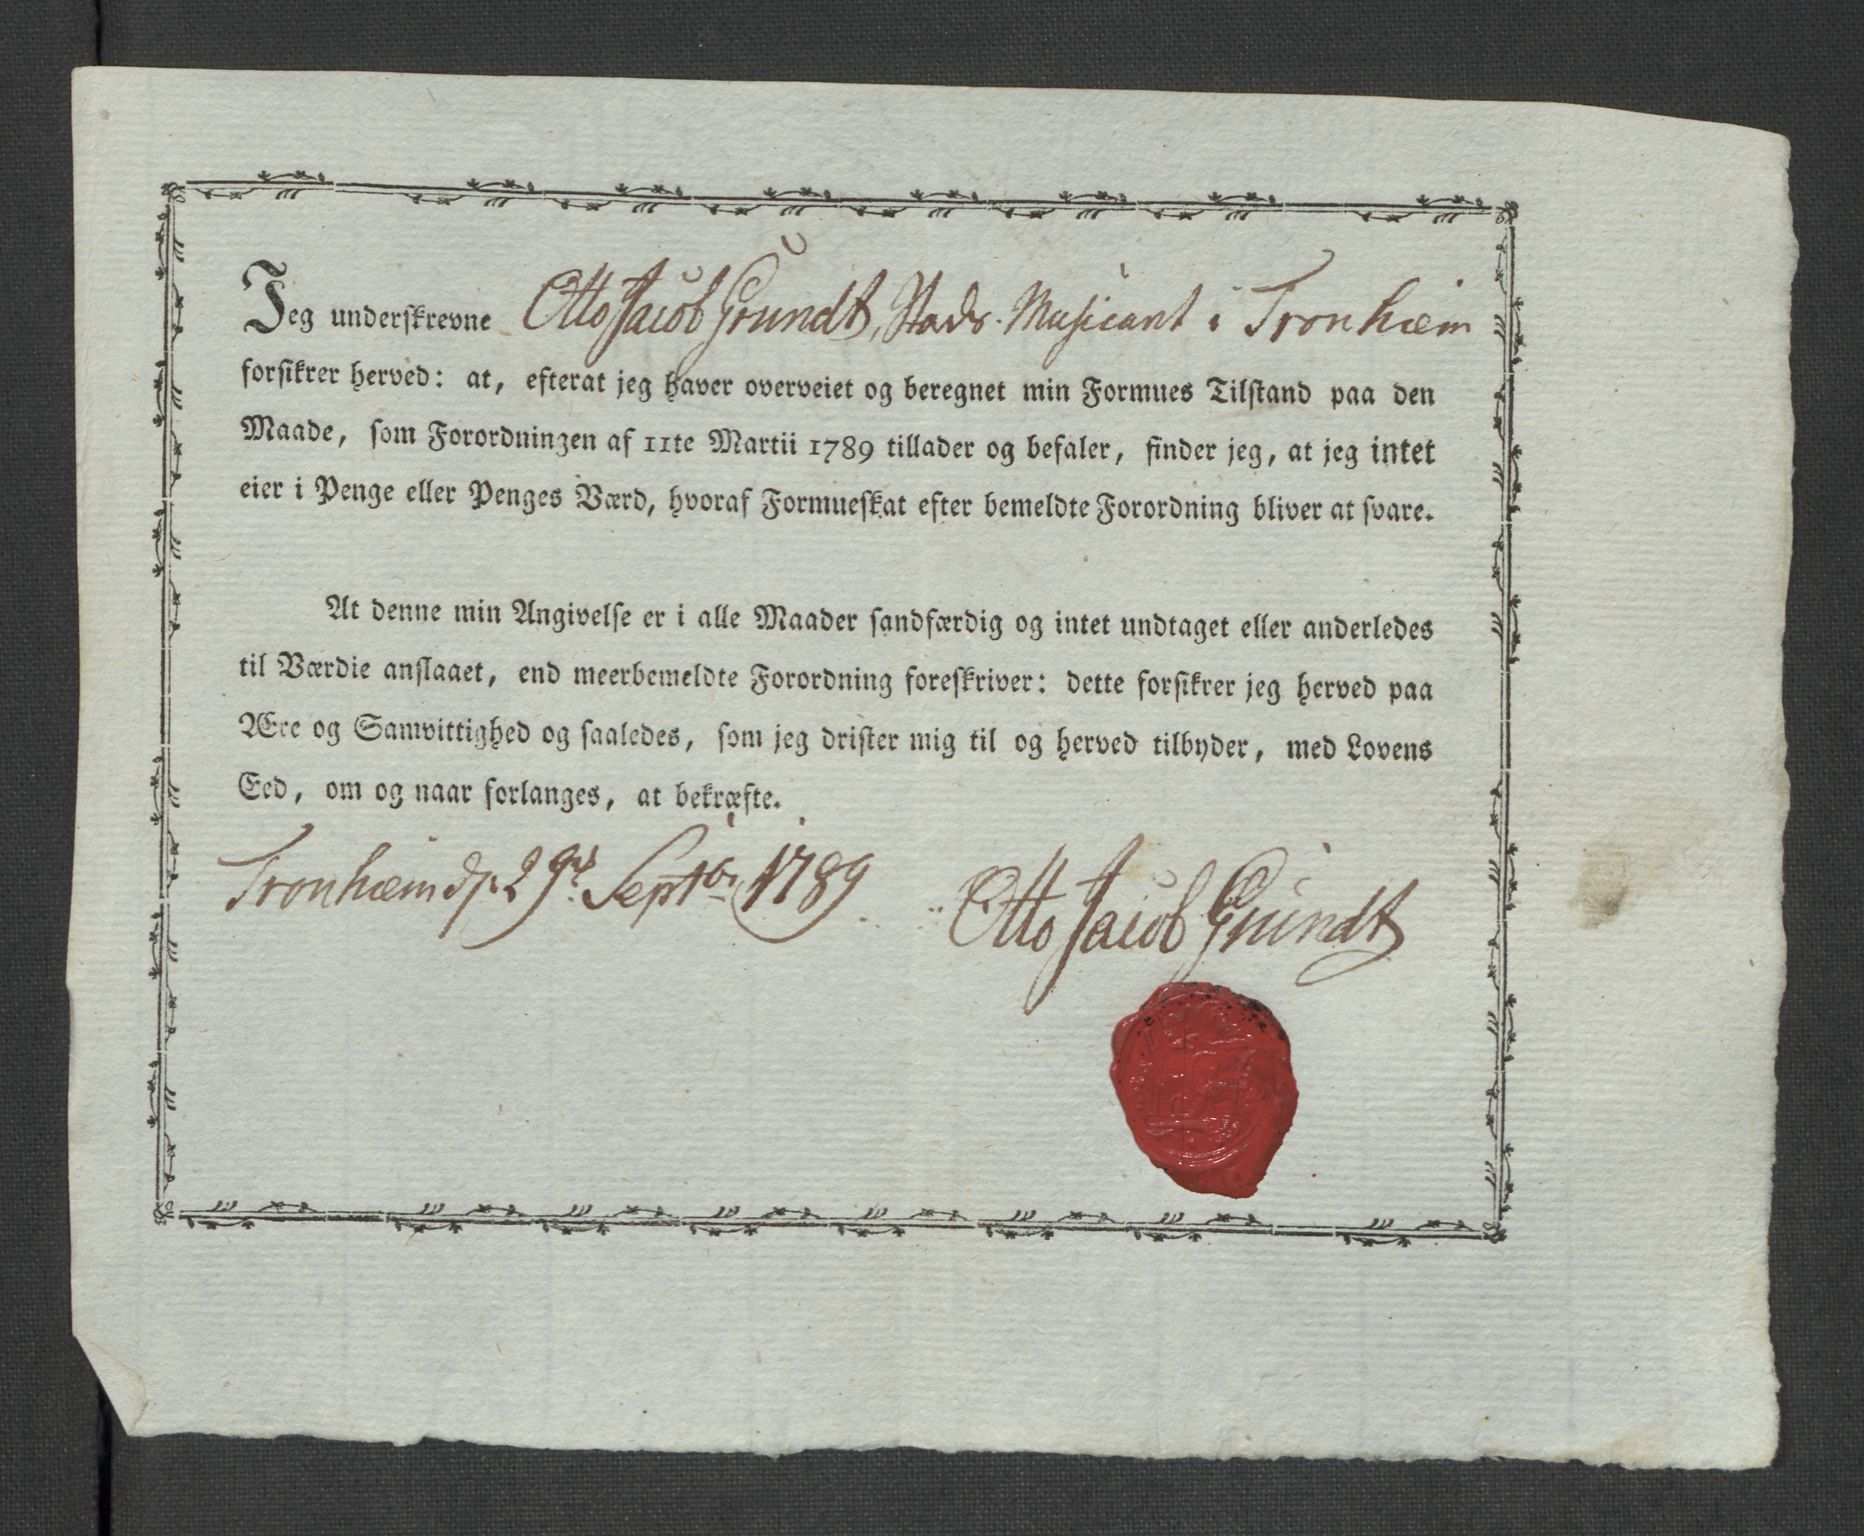 Jeg underskrevne Otto Jacob Grundt, Stads. Musicant i Tronhæim
forsikrer herved: at, efterat jeg haver overveiet og beregnet min Formues Tilstand paa den
Maade, som Forordningen af 11te Martii 1789 tillader og befaler, finder jeg, at jeg intet
eier i Penge eller Penges Værd, hvoraf Formueskat efter bemeldte Forordning bliver at svare.
At denne min Angivelse er i alle Maader sandfærdig og intet undtaget eller anderledes
til Værdie anslaaet, end meerbemeldte Forordning foreskriver: dette forsikrer jeg herved paa
Ære og Samvittighed og saaledes, som jeg drister mig til og herved tilbyder, med Lovens
Eed, om og naar forlanges, at bekræfte.
Tronhæim d. 29de Septbr. 1789
Otto Jacob Grundt